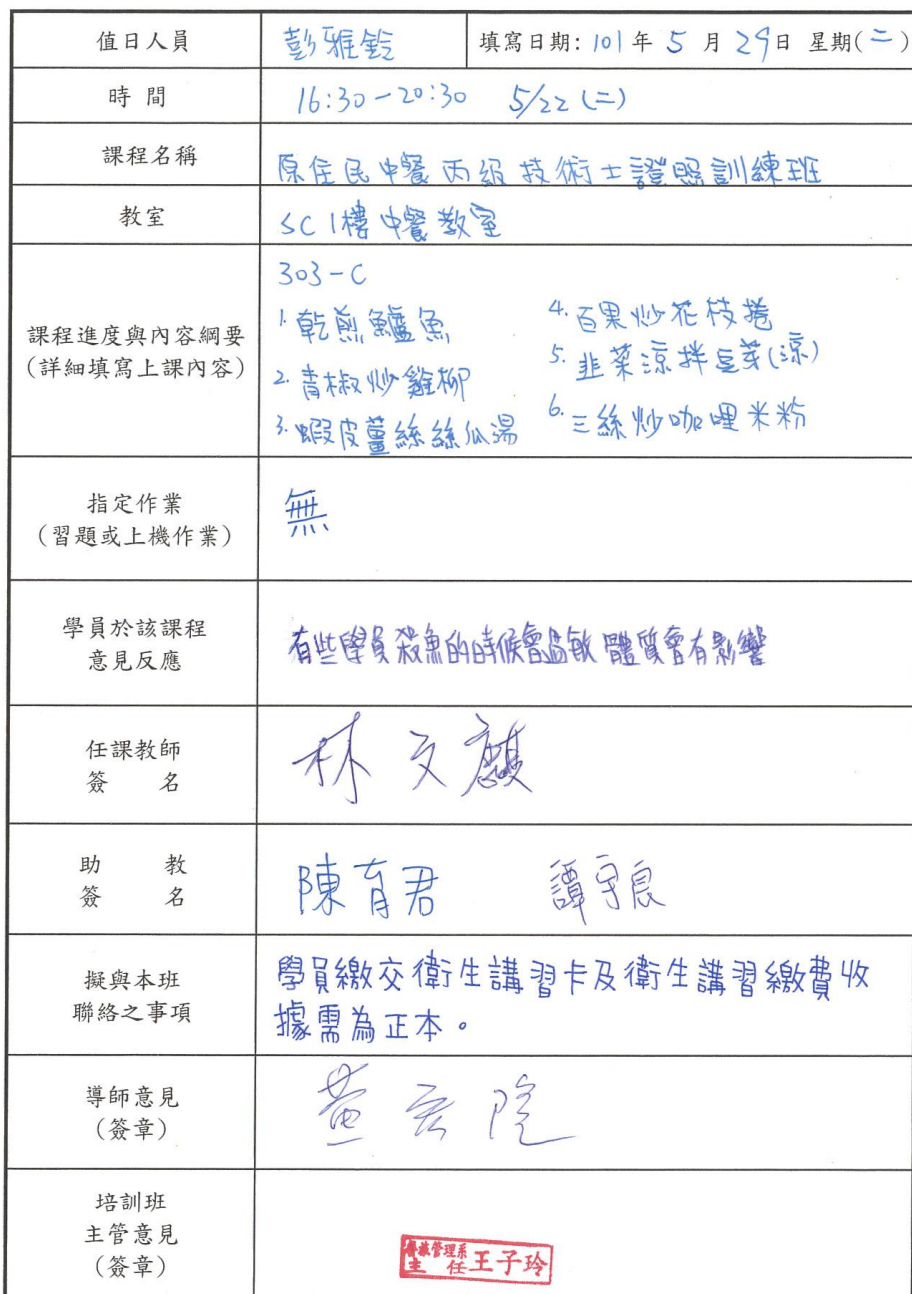 值日人員 彭雅鈴 填寫日期: 101年 5 月 29日 星期(二)
時 間 16:30-20:30 5/22 (二)
課程名稱 原住民中餐丙級技術士證照訓練班
教室 SC 1樓中餐教室
課程進度與內容綱要
(詳細填寫上課內容)
303-C
1.乾煎鱸魚
2.青椒炒雞柳
3.蝦皮薑絲絲瓜湯
4.百果炒花枝捲
5.韭菜涼拌豆芽(涼)
6.三絲炒咖哩米粉
指定作業
(習題或上機作業)
無
學員於該課程
意見反應
有些學員殺魚的時候會過敏 體質會有影響
任課教師
簽 名
林文
助 教
簽 名
陳育君 譚守良
擬與本班
聯絡之事項
學員繳交衛生講習卡及衛生講習繳費收
據需為正本。
導師意見
(簽章)
黃
培訓班
主管意見
(簽章)
管理系
主 任 王子玲